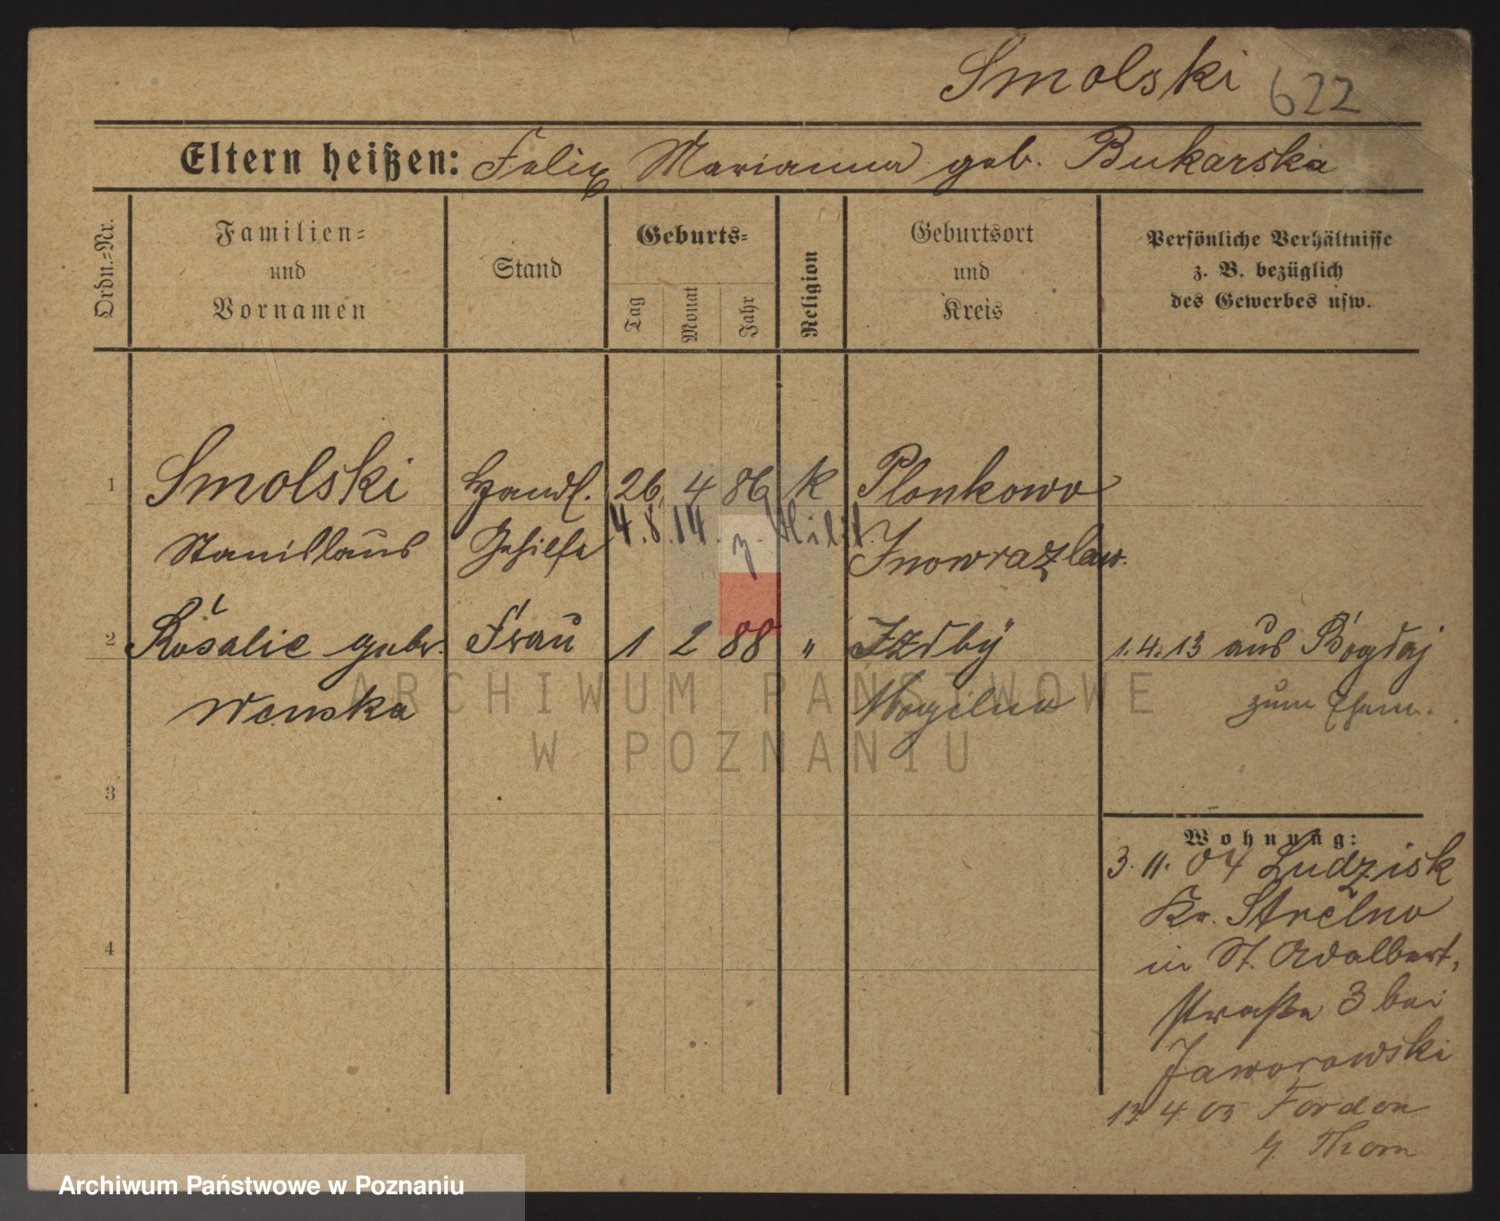 Smolski 622
Eltern heißen: Felix Marianna geb. Bukarska
Ordn.=Nr.
Familien=
und
Vornamen
Stand
Geburts=
Tag
Monat
Jahr
Religion
Geburtsort
und
Kreis
Persönliche Verhältnisse
z. B. bezüglich
des Gewerbes usw.
1 Smolski Handl. 26 4 86 k Plonkowo
4.8.14. z. Milit.
Stanislaus Gehilfe Inowrazlaw.
2 Rosalie geb. Frau 1 2 88 " Izdby 1.4.13 aus Bogdaj
Wenska Mogilno zum Ehem.
3
4
Wohnung:
3.11.04 Ludzisk
Kr. Strelno
in St. Adalbert,
straße 3 bei
Jaworowski
4 05 Fordon
Thorn
ARCHIWUM PAŃSTWOWE
W POZNANIU
Archiwum Państwowe w Poznaniu